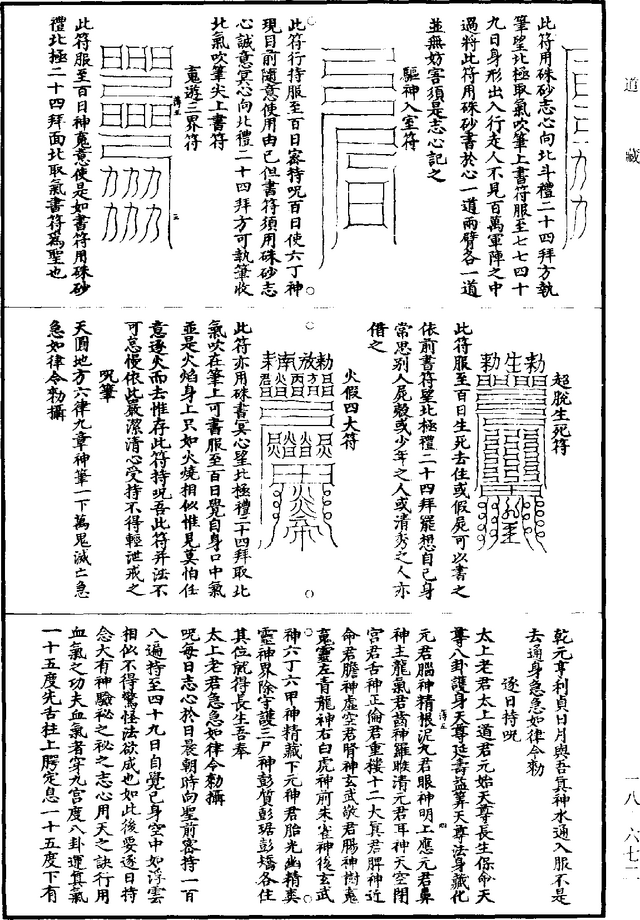 道藏
此符用硃砂志心向北斗禮二十四拜方執
筆望北極取氣吹筆上書符服至七七四十
九日身形出入行走人不見百萬軍陣之中
遇將此符用硃砂書於心一道兩臂各一道
並無妨害須是志心記之
驅神入室符
此符行持服至百日密持呪百日使六丁神
現目前隨意使用由己但書符須用硃砂志
心誠意冥心向北禮二十四拜方可執筆收
北氣吹筆尖上書符
蒐遊三界符
此符服至百日神蒐意使是如書符用硃砂
禮北極二十四拜面北取氣書符爲聖也
超脫生死符
勅生勅
此符服至百日生死去住或假屍可以書之
依前書符望北極禮二十四拜罷想自己身
常思别人屍殼或少年之人或清秀之人亦
借之
火假四大符
此符亦用硃書冥心望北極禮二十四拜取北
氣吹在筆上可書服至百日覺自身口中氣
並是火焰身上只如火燒相似惟見莫怕任
意逐火而去惟存此符持呪吾此符并法不
可怠慢依此嚴潔清心受持不得輕泄戒之
呪筆
天圓地方六律九章神筆一下萬鬼滅亡急
急如律令勅攝
乾元亨利貞日月與吾眞神水通入服不是
去通身急急如律令勅
逐日持呪
太上老君太上道君元始天尊長生保命天
尊八卦護身天尊延壽益筭天尊法身藏化
元君腦神精根泥丸君眼神明上應元君鼻
神主龍氣君齒神羅暌清元君耳神天空閉
宮君舌神正倫君重樓十二大眞君脾神近
命君膽神虛空君腎神玄武歇君腸神樹蒐
蒐靈左青龍神右白虎神前朱雀神後玄武
神六丁六甲神精藏下元神君胎光幽精爽
靈神界除守護三尸神彭質彭琚彭矯各住
其位就得長生吾奉
太上老君急急如律令勅攝
呪每日志心於日晨朝時向聖前密持一百
八遍持至四十九日自覺己身空中如浮雲
相似不得驚怪法欲成也如此後要逐日持
念大有神驗祕之祕之志心用天之訣行用
血氣之功夫血氣者穿九宮度八卦運眞氣
一十五度先舌柱上腭定息一十五度下有
一八·六七二